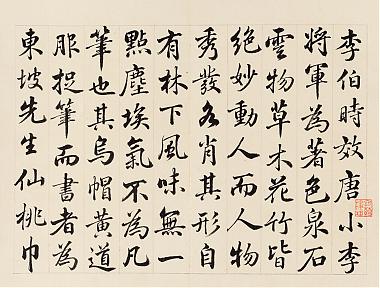 李伯時效唐小李
將軍為著色泉石
雲物草木花竹皆
絕妙動人而人物
秀發各肖其形自
有林下風味無一
點塵埃氣不為凡
筆也其烏帽黃道
服捉筆而書者為
東坡先生仙桃巾